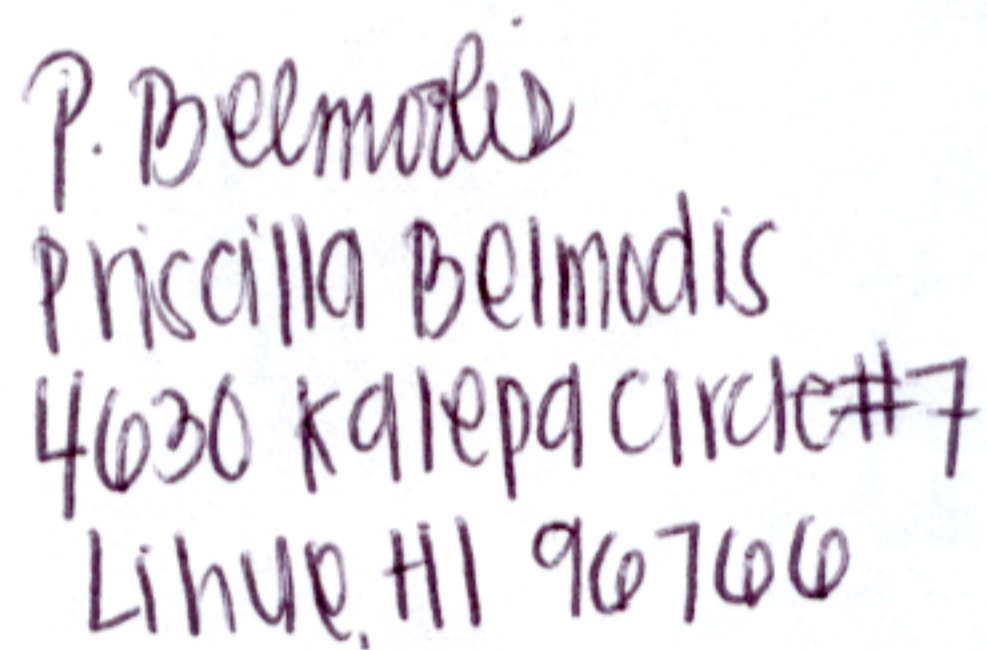 P. Belmodis
Priscilla Belmodis
4630 Kalepa Circle #7
Lihue, HI 96766